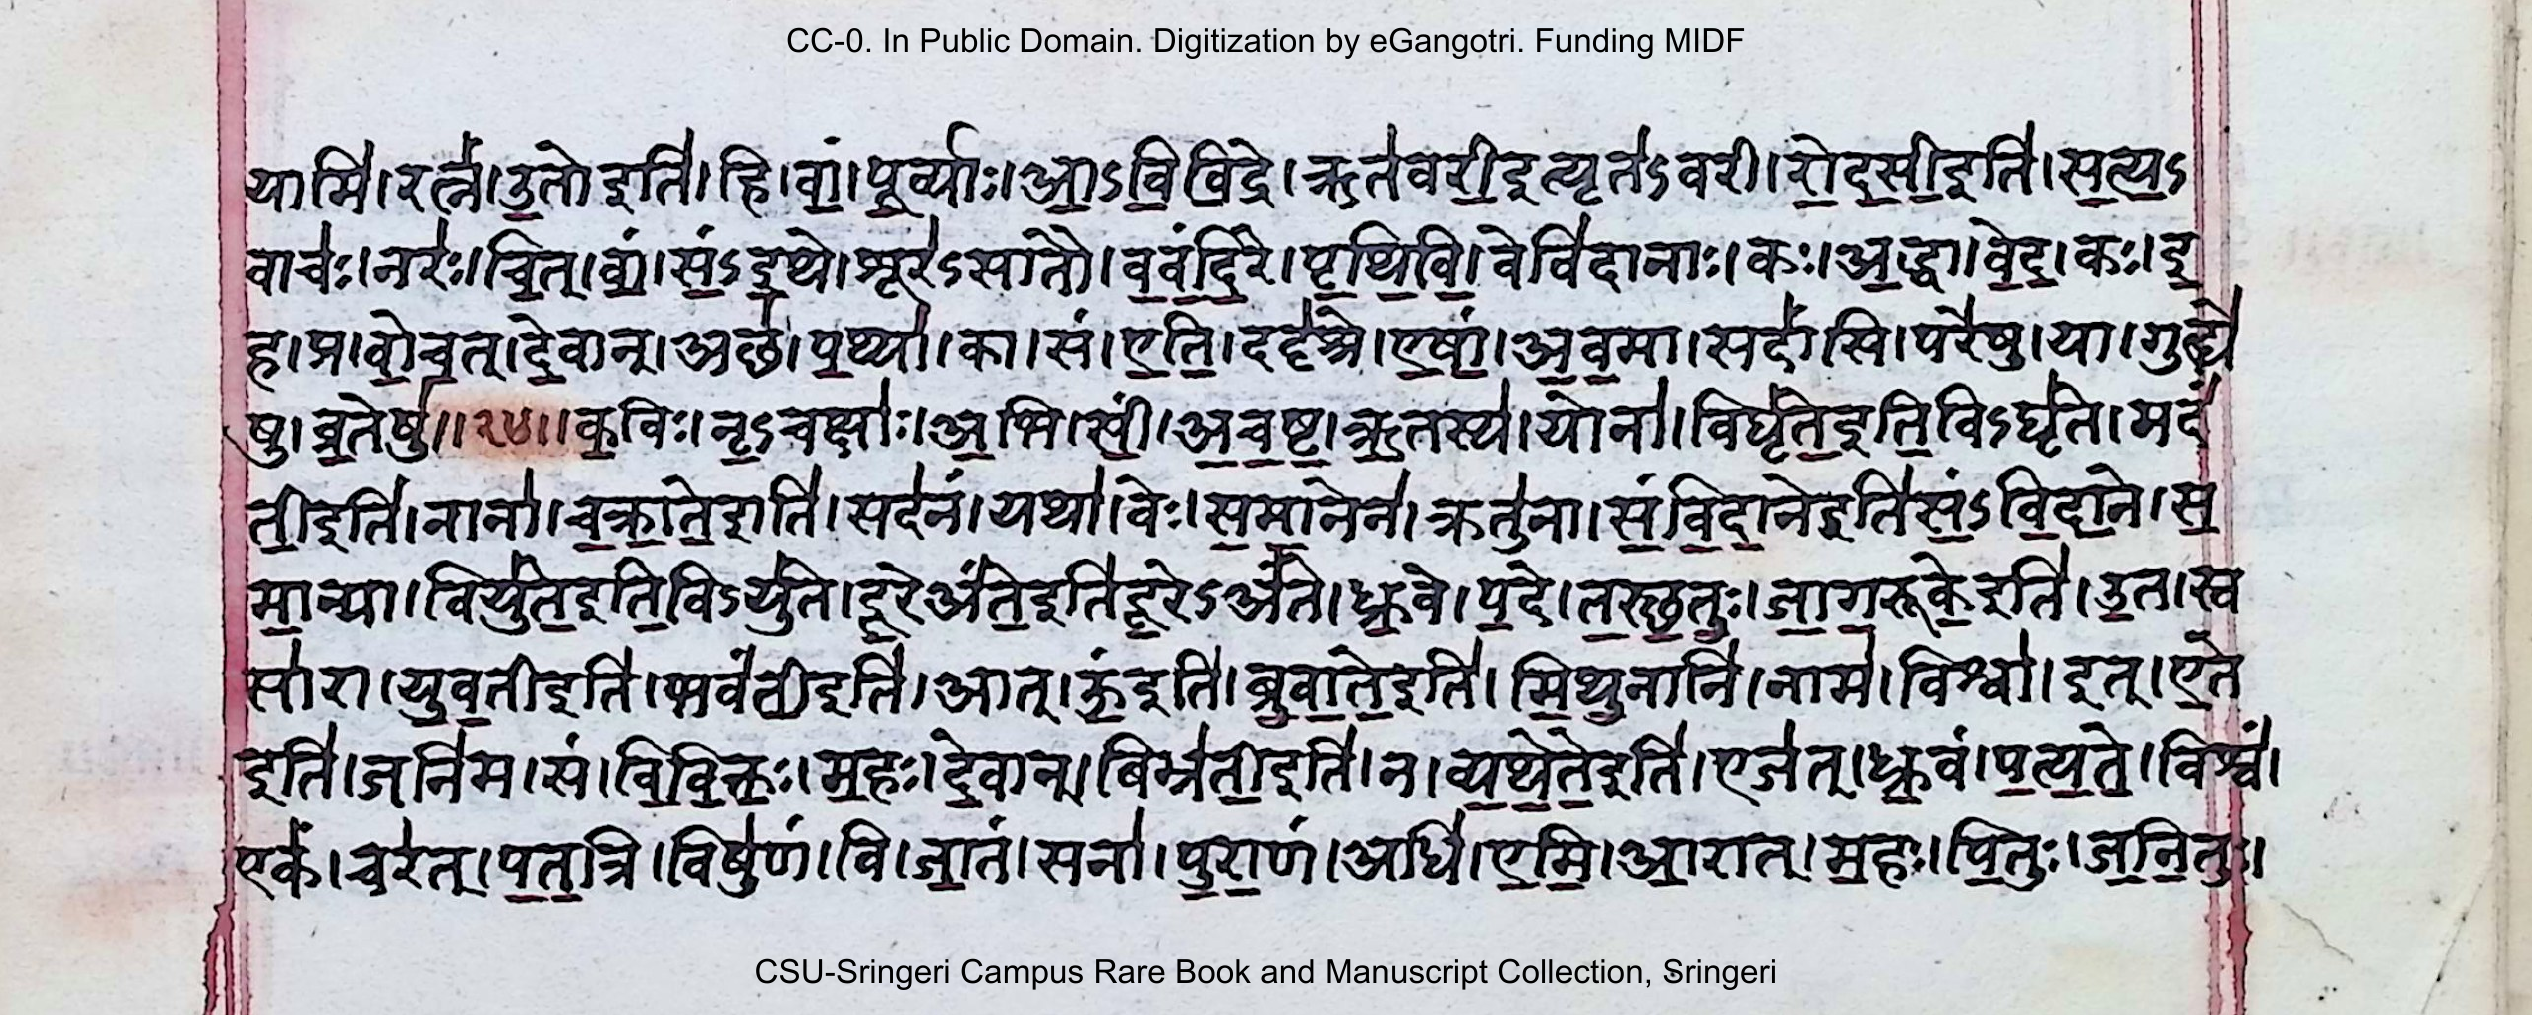 CC-0. In Public Domain. Digitization by eGangotri. Funding MIDF
यामि॑।रत्नं॑।उ॒तो इति॑।हि।वां॒।पू॒र्व्याः॑।आ॒ऽवि॒वि॒द्रे।ऋत॑वरी॒इत्यृत॑ऽवरी।रो॒द॒सी॒इति॑।स॒त्य॒ऽ
वाचः॑।नरः॑।चि॒त्।वां॒।सं॒ऽइ॒थे।शूर॑ऽसातौ।व॒वं॒दि॒रे।पृ॒थि॒वि॒।वेवि॑दानाः।कः।अ॒द्धा।वे॒द॒।कः।इ॒
ह।प्र।वो॒च॒त्।दे॒वान्।अछ॑।प॒थ्या॑।का।सं।ए॒ति॒।ददृ॑श्रे।ए॒षां॒।अ॒व॒मा।सदां॑सि।परे॑षु।या।गुह्ये॑
षु।व्र॒तेषु॑॥२४॥क॒विः।नृ॒ऽचक्षाः॑।अ॒भि।सीं॒।अ॒च॒ष्ट॒।ऋ॒तस्य॑।योना॑।विघृ॑ते॒इति॒विऽघृ॑ते।मदं॑
ती॒इति॑।नाना॑।च॒क्रा॒ते॒इति॑।सद॑नं।यथा॑।वेः।स॒मा॒नेन॑।क्रतु॑ना।सं॒वि॒दा॒नेइति॑सं॒ऽवि॒दा॒ने।स॒
मा॒न्या।वियु॑ते॒इति॒विऽयु॑ते।दू॒रेअं॑ते॒इति॑दू॒रेऽअं॑ते।ध्रु॒वे।प॒दे।त॒स्छ॒तुः॒।जा॒ग॒रूके॒इति॑।उ॒त।स्व
सा॑रा।यु॒व॒तीइति॑।भवं॑ती॒इति॑।आत्।ऊं॒इति॑।ब्रु॒वा॒ते॒इति॑।मि॒थु॒नानि॑।नाम॑।विश्वा॑।इत्।ए॒ते
इति॑।जनि॑म।सं।वि॒वि॒क्तः॒।म॒हः।दे॒वान्।बिभ्र॑ती॒इति॑।न।व्य॒थे॒ते॒इति॑।एज॑त्।ध्रु॒वं।प॒त्य॒ते॒।विश्वं॑।
एकं॑।चर॑त्।प॒त॒त्रि।विषु॑णं।वि।जा॒तं।सना॑।पु॒रा॒णं।अधि॑।ए॒मि॒।आ॒रात्।म॒हः।पि॒तुः।ज॒नि॒तुः।
CSU-Sringeri Campus Rare Book and Manuscript Collection, Sringeri